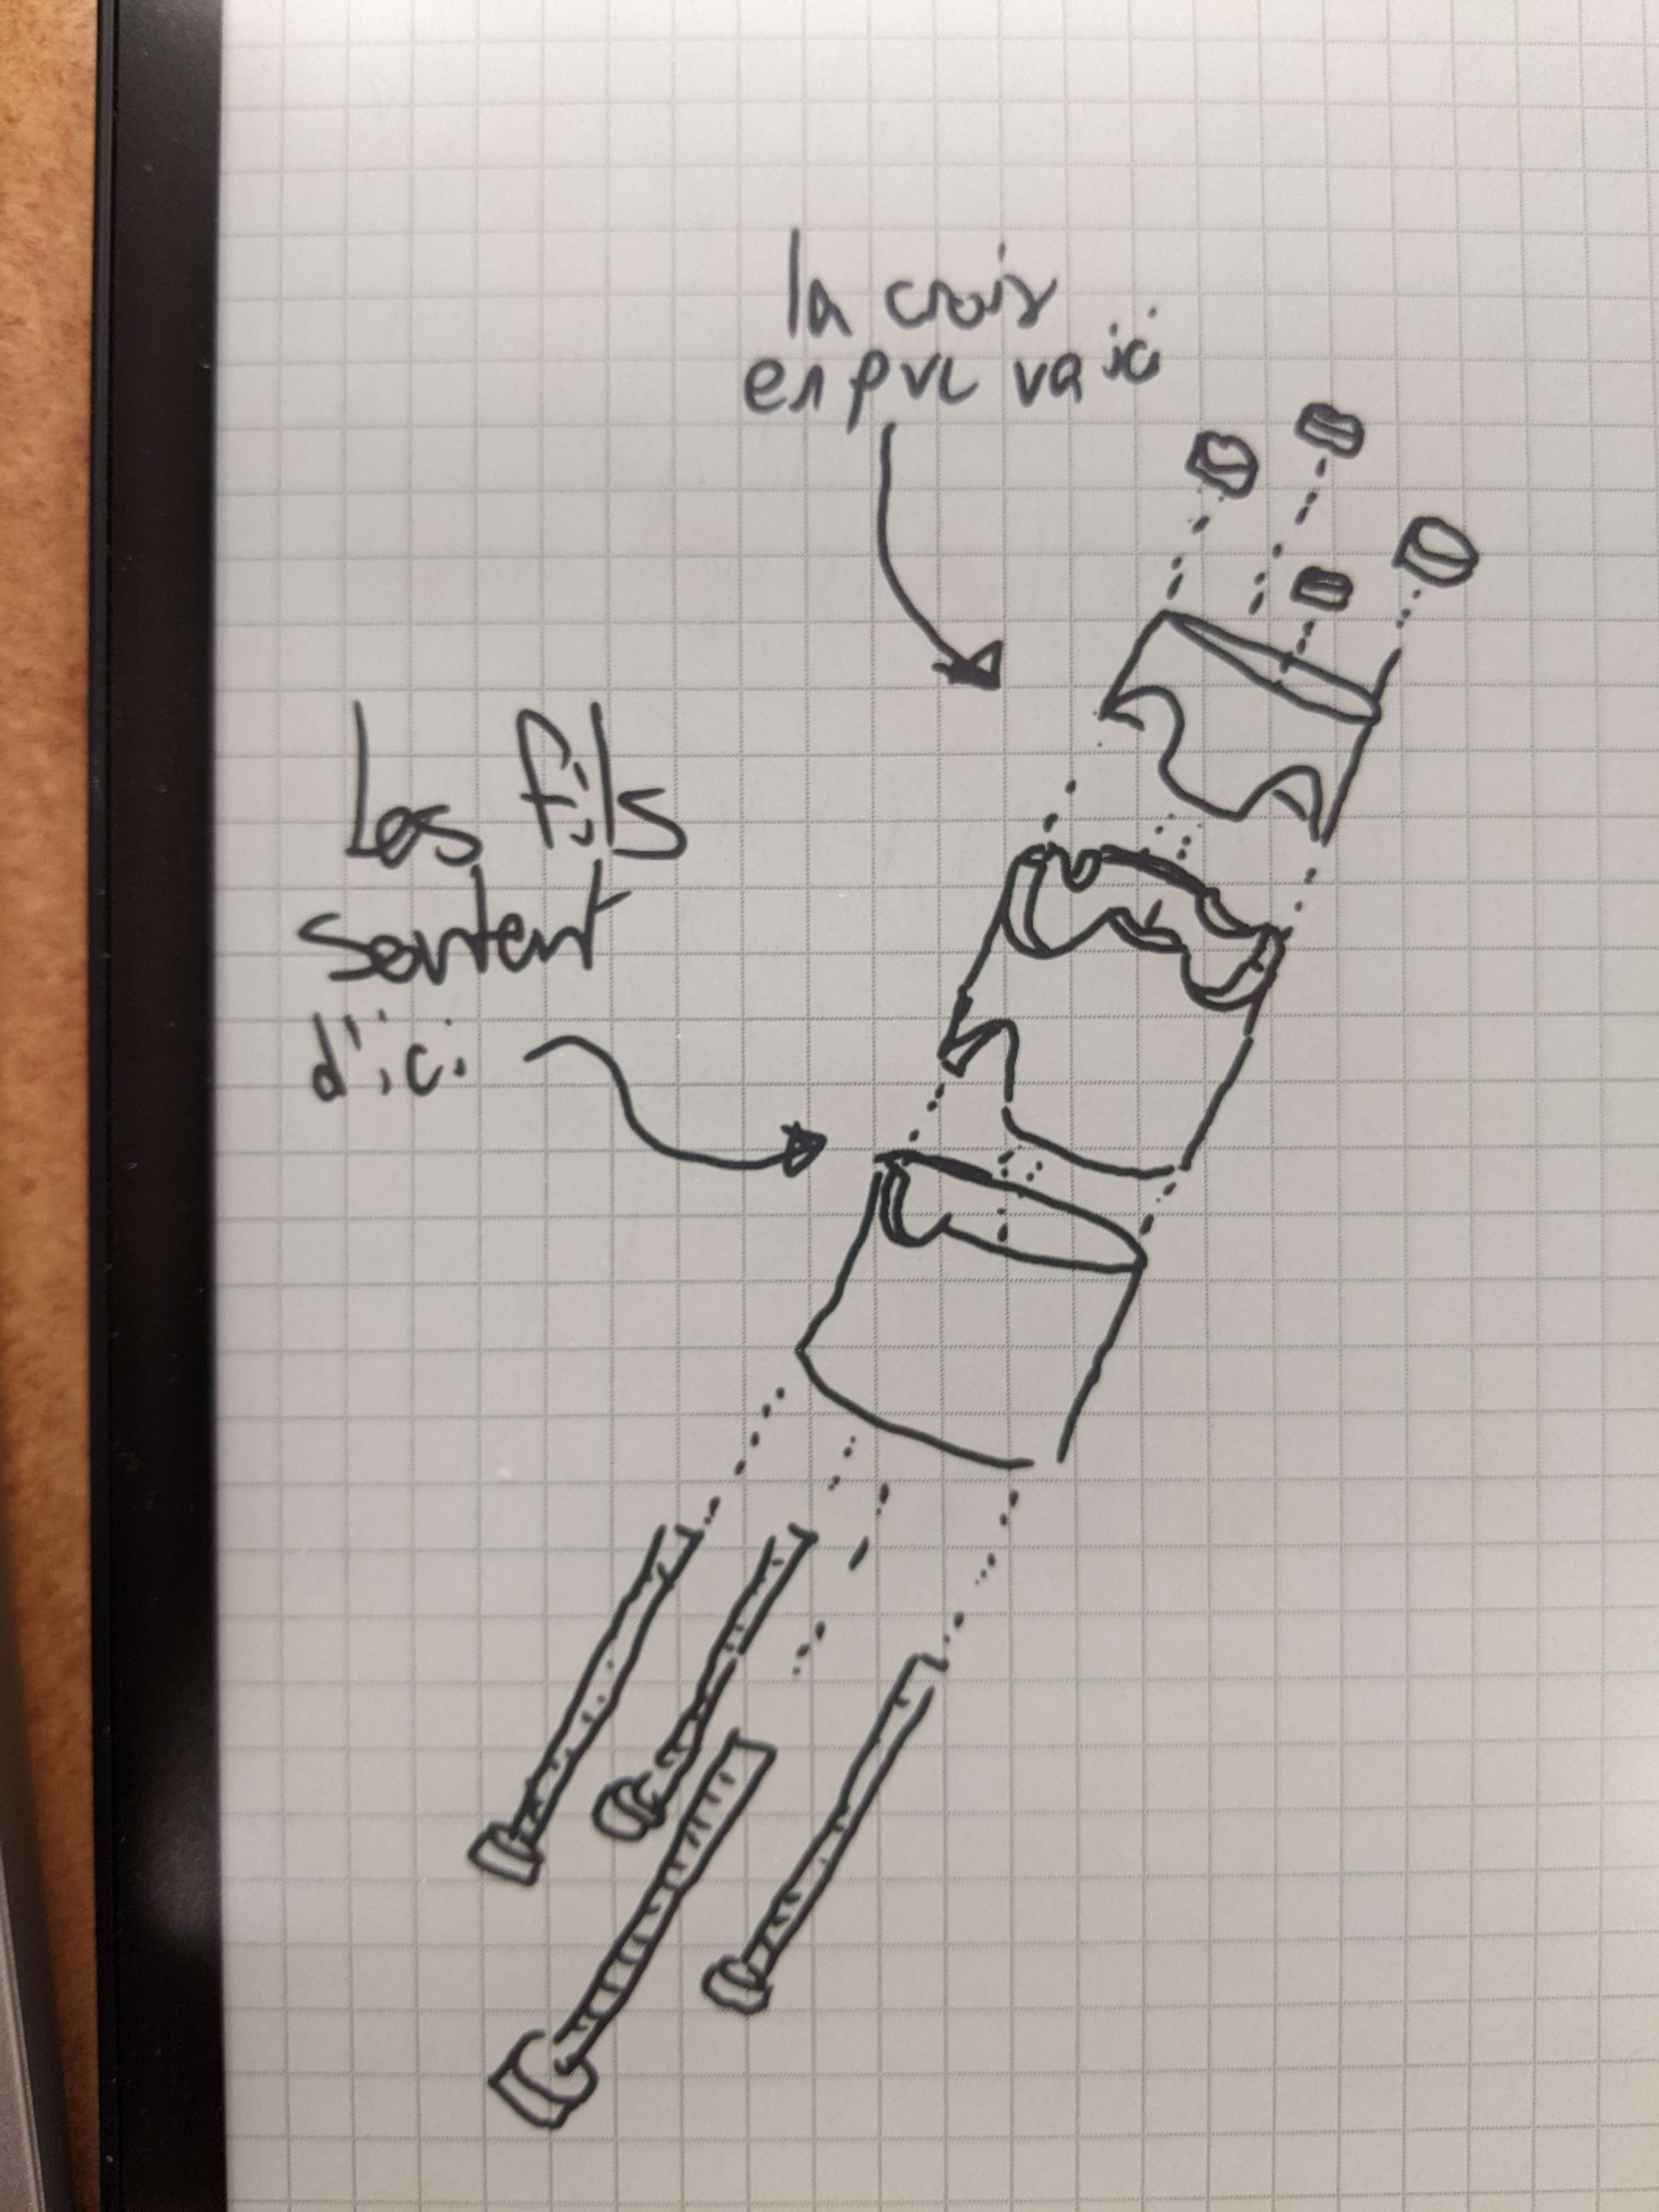 la croix
en pvc va ici
Les fils
sortent
d'ici